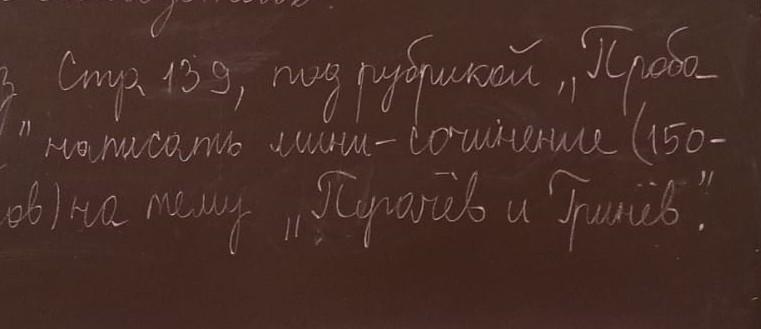 Стр 139, под рубрикой „Проба
" написать мини-сочинение (150-
ов) на тему „Пугачёв и Гринёв".